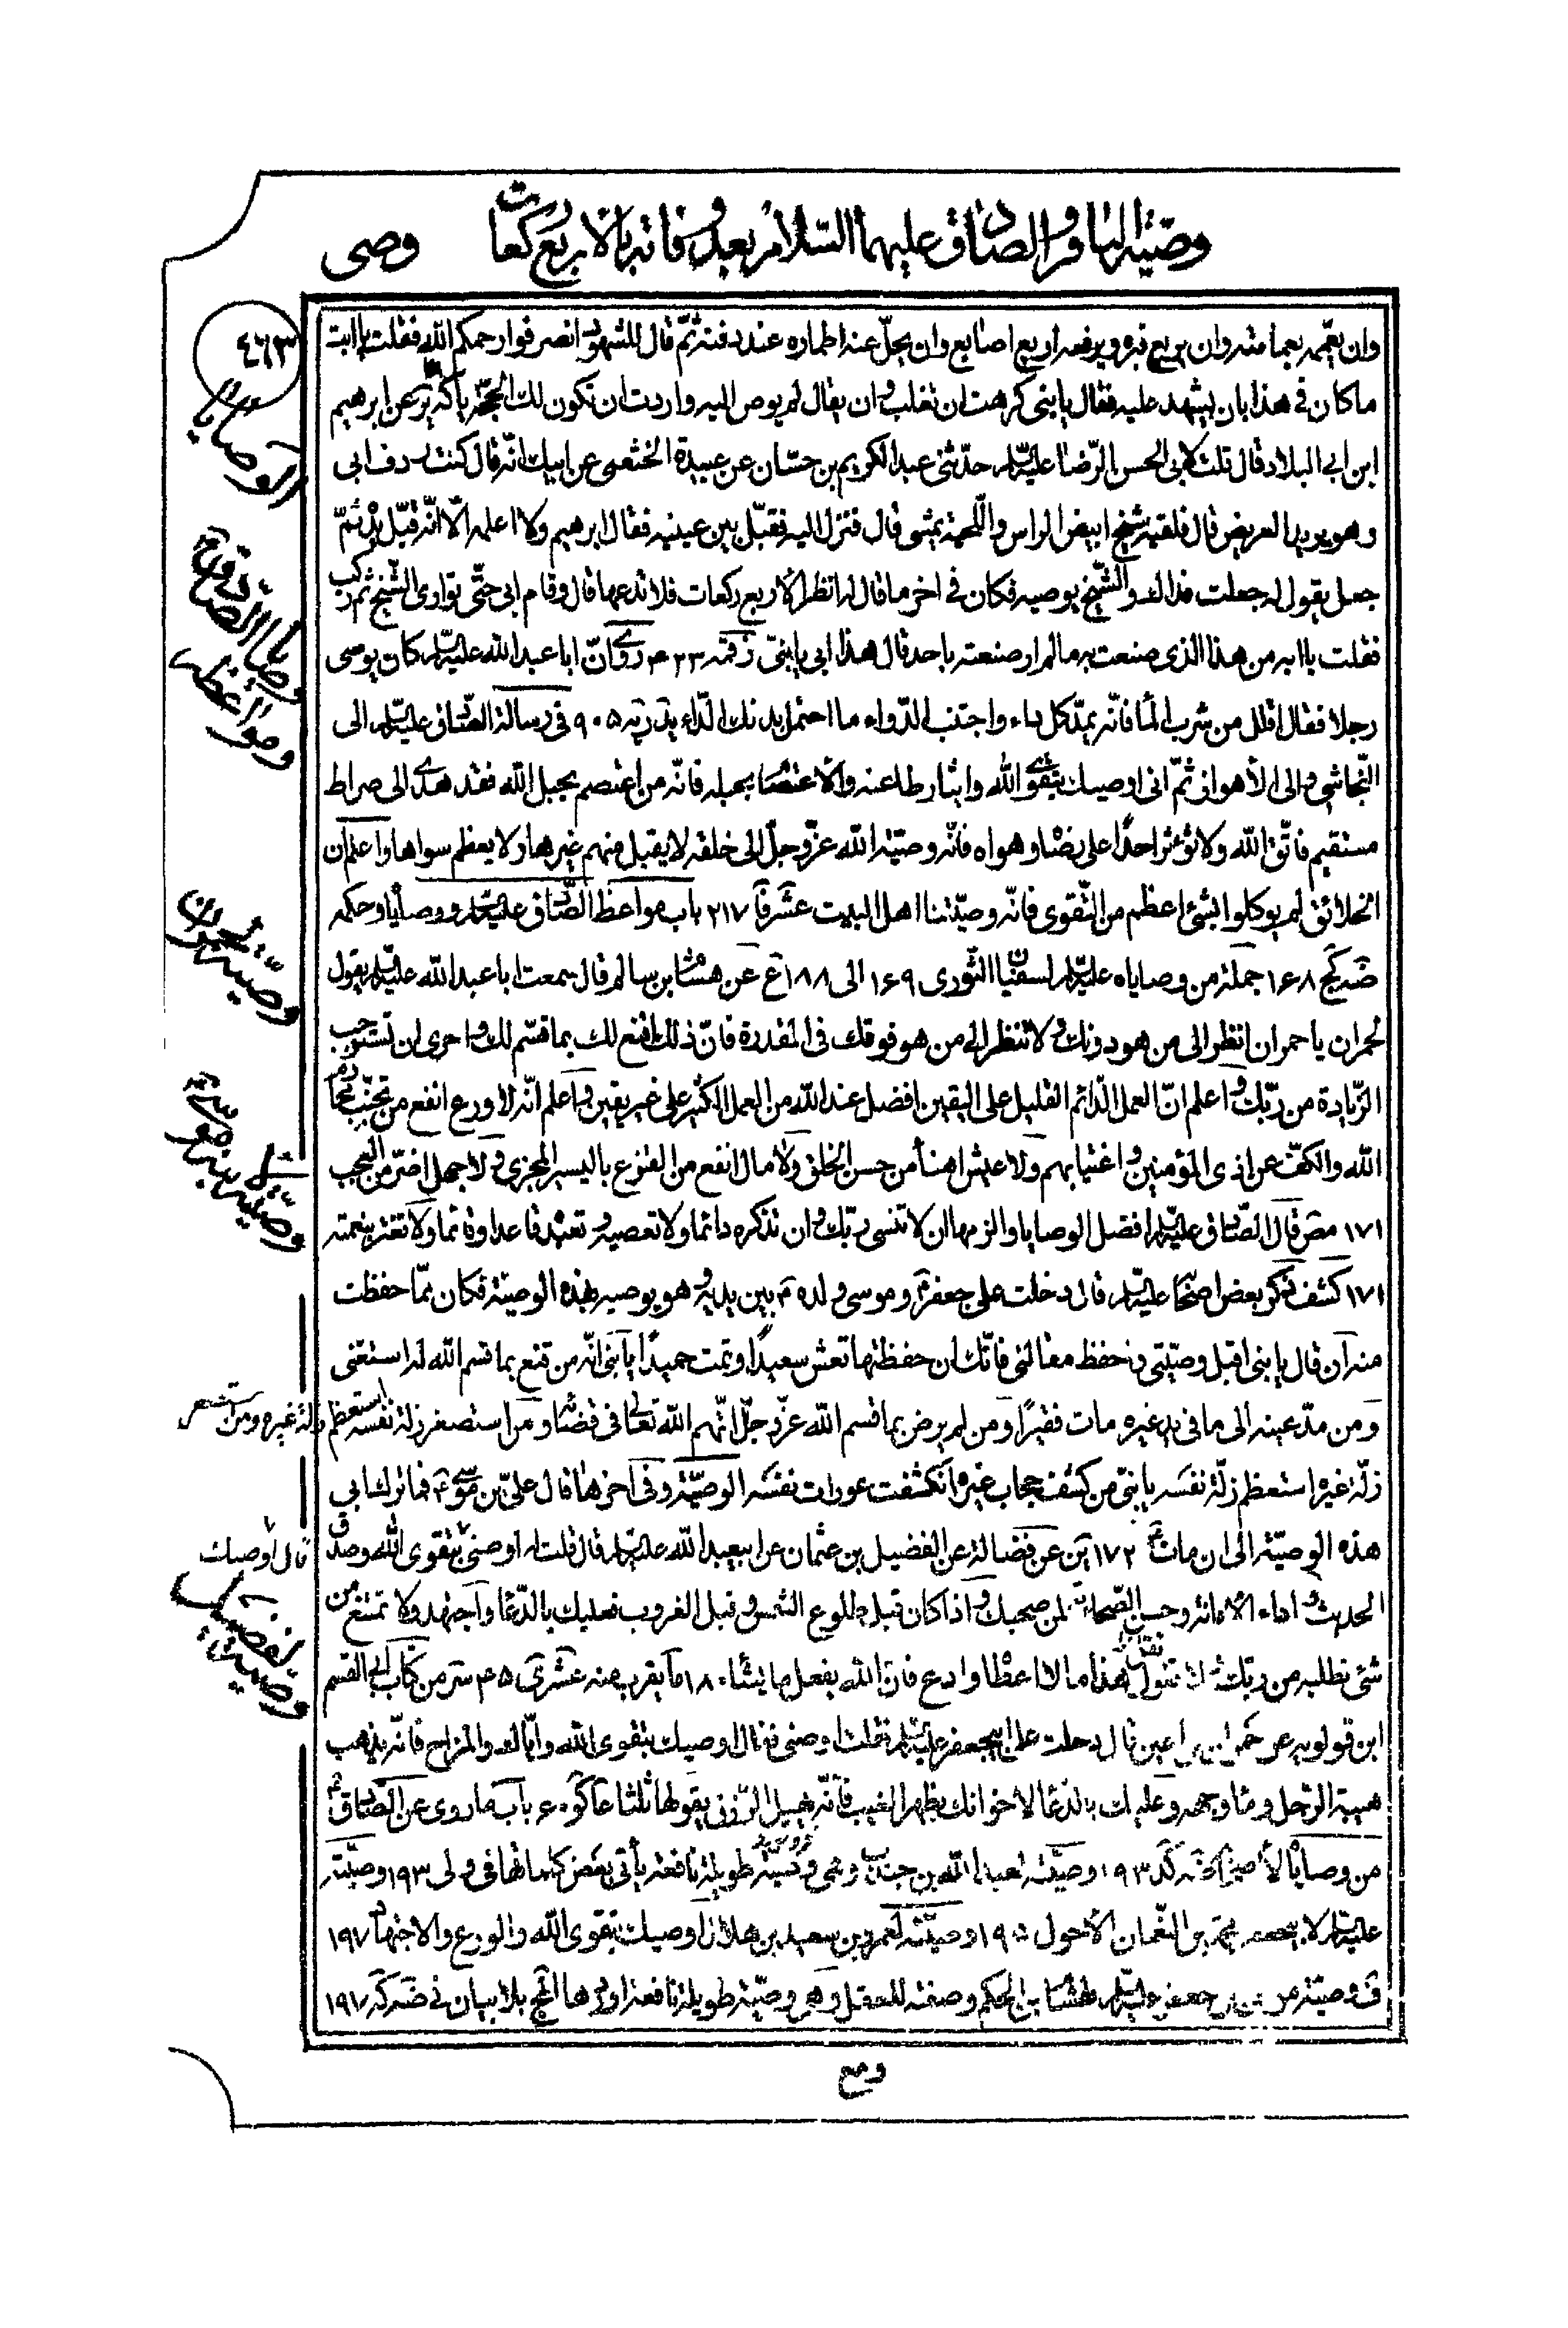 وصيّة الباقر والصّادق عليهما السّلام بعد وفاته بالاربع ركعات وصى
٤٦٣
وان يعمّمه بعمامته وان يربع قبره ويرفعه اربع اصابع وان يحلّ عنه اطماره عند دفنه ثمّ قال للشهود انصرفوا رحمكم الله فقلت يا ابت
ما كان في هذا بان يشهد عليه فقال يا بنى كرهت ان تغلب وان يقال لم يوص اليه واردت ان تكون لك الحجّة عن ابرهيم
ابن ابى البلاد قال قلت لابى الحسن الرّضا عليه السّلم حدّثنى عبد الكريم بن حسّان عن عبيدة الخثعمى عن ابيك انّه قال كنت ردف ابى
وهو يريد العريض قال فلقيه شيخ ابيض الراس واللّحية يمشى قال فنزل اليه فقبّل بين عينيه فقال ابرهيم ولا اعلمه الّا انّه قبّل يده ثمّ
جعل يقول له جعلت فداك والشّيخ يوصيه فكان في اخر ما قال له انظر الاربع ركعات فلا تدعها قال وقام ابى حتّى توارى الشّيخ ثم ركب
فقلت يا ابه من هذا الذى صنعت به ما لم ارك صنعته باحد قال هذا ابى يا بنىّ روى انّ ابا عبد الله عليه السّلم كان يوصى
رجلا فقال اقلل من شرب الماء فانّه يمدّ كل داء واجتنب الدّواء ما احتمل بدنك الدّاء ٩٠٥ في رسالة الصّادق عليه السّلم الى
النّجاشى والى الأهواز ثمّ انى اوصيك بتقوى الله وايثار طاعته والاعتصام بحبله فانّه من اعتصم بحبل الله فقد هدى الى صراط
مستقيم فاتّق الله ولا تؤثر احدًا على رضاه وهواه فانّه وصيّة الله عزّ وجلّ الى خلقه لا يقبل منهم غيرها ولا يعظم سواها واعلم ان
الخلائق لم يوكلوا بشئ اعظم من التّقوى فانّه وصيّتنا اهل البيت ٢١٧ باب مواعظ الصّادق عليه السّلم ووصاياه وحكمه
١٦٨ جملة من وصاياه عليه السّلم لسفيان الثّورى ١٦٩ الى ١٨٨ ع عن هشام بن سالم قال سمعت ابا عبد الله عليه السّلم يقول
لحمران يا حمران انظر الى من هو دونك ولا تنظر الى من هو فوقك في المقدرة فانّ ذلك اقنع لك بما قسم لك واحرى ان تستوجب
الزّيادة من ربّك واعلم انّ العمل الدّائم القليل على اليقين افضل عند الله من العمل الكثير على غير يقين واعلم انّه لا ورع انفع من تجنّب محارم
الله والكفّ عن اذى المؤمنين واغتيابهم ولا عيش اهنأ من حسن الخلق ولا مال انفع من القنوع باليسير المجزى ولا جهل اضرّ من العجب
١٧١ مص قال الصّادق عليه السّلم افضل الوصايا والزمها ان لا تنسى ربّك وان تذكره دائما ولا تعصيه وتعبده قاعدا وقائما ولا تغتر بنعمته
١٧١ كشف ذكر بعض اصحابه عليه السّلم قال دخلت على جعفر وموسى ولده بين يديه وهو يوصيه بهذه الوصيّة فكان ممّا حفظت
منه ان قال يا بنى اقبل وصيّتى واحفظ مقالتى فانّك ان حفظتها تعش سعيدًا وتمت حميدًا يا بنى انّه من قنع بما قسم الله له استغنى
ومن مدّ عينه الى ما في يد غيره مات فقيرًا ومن لم يرض بما قسم الله عزّ وجلّ اتّهم الله تعالى في قضائه ومن استصغر زلة نفسه استعظم زلة غيره ومن استصغر
زلّة غيره استعظم زلّة نفسه يا بنىّ من كشف حجاب غيره انكشفت عورات نفسه الوصيّة وفى آخرها قال علىّ بن موسى فما ترك ابى
هذه الوصيّة الى ان مات ١٧٢ ين عن فضالة عن الفضيل بن عثمان عن ابى عبد الله عليه السّلم قال قلت له اوصنى قال اوصيك بتقوى الله وصدق
الحديث واداء الأمانة وحسن الصّحابة لمن صحبك واذا كان قبل طلوع الشمس وقبل الغروب فعليك بالدّعاء واجتهد ولا تمتنع من
شئ تطلبه من ربّك ولا تقول هذا ما لا اعطاه وادع فانّ الله يفعل ما يشاء ١٨٠ ما يقرب منه من كتاب ابى القسم
ابن قولويه عن حمران بن اعين قال دخلت على ابى جعفر عليه السّلم فقلت اوصنى فقال اوصيك بتقوى الله وايّاك والمزاح فانّه يذهب
هيبة الرّجل وماء وجهه وعليك بالدّعاء لاخوانك بظهر الغيب فانّه يهيل الرّزق يقولها ثلثا باب ما روى عن الصّادق
من وصاياه لأصحابه ١٩٣ وصيّته لعبد الله بن جندب وهى وصيّة طويلة نافعة يأتى بعض كلماتها في ولى ١٩٣ وصيّته
عليه السّلم لابى جعفر محمّد بن النّعمان الأحول ١٩٥ وصيّته لعمرو بن سعيد بن هلال اوصيك بتقوى الله والورع والاجتهاد ١٩٧
وصيّة موسى بن جعفر عليه السّلم لهشام بن الحكم وصفته للعقل وهى وصيّة طويلة نافعة اوردها المج بلا بيان في ١٩٧
ومع
الوصايا
وصايا الصّادق
ومواعظه
وصيّته لحمران
وصيّته لابنه موسى
وصيّته لفضيل